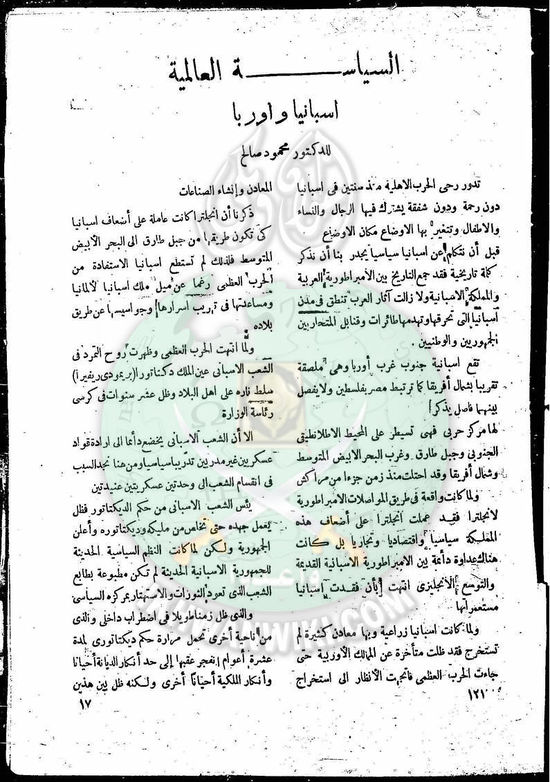 السياســـة العالمية
اسبانيا و اوربا
للدكتور محمود صالح
تدور رحى الحرب الاهلية منذ سنتين فى اسبانيا
دون رحمة ودون شفقة يشترك فيها الرجال والنساء
والاطفال وتتغير بها الاوضاع مكان الاوضاع
قبل أن نتكلم عن اسبانيا سياسيا يجدر بنا أن نذكر
كلمة تاريخية فقد جمع التاريخ بين الأمبراطورية العربية
والمملكة الاسبانية ولا زالت آثار العرب تنطق فى مدن
أسبانيا التى تحرقها وتهدمها طائرات وقنابل المتحاربين
الجمهوريين والوطنيين .
تقع اسبانية جنوب غرب أوربا وهى ملصقة
تقريبا بشمال أفريقا كما ترتبط مصر بفلسطين ولا يفصل
بينهما فاصل يذكر
لها مركز حربى فهى تسيطر على المحيط الاطلانطيقى
الجنوبى وجبل طارق وغرب البحر الابيض المتوسط
وشمال أفريقا وقد احتلت منذ زمن جزءا من مراكش
ولما كانت واقعة فى طريق المواصلات الامبراطورية
لانجلترا فقد عملت أنجلترا على أضعاف هذه
المملكة سياسيا واقتصاديا وتجاريا بل كانت
هناك عداوة دائمة بين الامبراطورية الاسبانية القديمة
والتوسع الانجليزى انتهت بأن فقدت اسبانيا
مستعمراتها
ولما كانت اسبانيا زراعية وبها معادن كثيرة لم
تستخرج فقد ظلت متأخرة عن الممالك الاوربية حتى
جاءت الحرب العظمى فاتجهت الأنظار الى استخراج
١٢١
المعادن وإنشاء الصناعات
ذكرنا أن انجلترا كانت عاملة على أضعاف اسبانيا
كى تكون طريقها من جبل طارق الى البحر الأبيض
المتوسط فلذلك لم تستطع اسبانيا الاستفادة من
الحرب العظمى رغما عن ميل ملك اسبانيا لالمانيا
ومساعدتها فى تهريب أسرارها وجواسيسها عن طريق
بلاده
ولما انتهت الحرب العظمى وظهرت روح التمرد فى
الشعب الاسبانى عين الملك دكتاتورا (بريمودى ريفيرا)
سلط ناره على اهل البلاد وظل عشر سنوات فى كرسى
رئاسة الوزارة
الا أن الشعب الاسبانى يخضع دائما الى ارادة قواد
عسكريين غير مدربين تدريبا سياسيا ومن هنا نجد السبب
فى انقسام الشعب الى وحدتين عسكريتين عنيدتين
يئس الشعب الاسبانى من حكم الديكتاتور فظل
يعمل جهده حتى تخلص من مليكه وديكتاتوره وأعلن
الجمهورية ولكن لما كانت النظم السياسية الحديثة
للجمهورية الاسبانية الحديثة لم تكن مطبوعة بطابع
الشعب الذى تعود الثورات والاستهتار بمركزه السياسى
والذى ظل زمنا طويلا فى اضطراب داخلى والذى
من ناحية أخرى تحمل مرارة حكم ديكتاتورى لمدة
عشرة أعوام انفجر عقبها إلى حد أنكار الديانة أحيانا
وأنكار الملكية أحيانا أخرى ولكنه ظل بين هذين
١٧